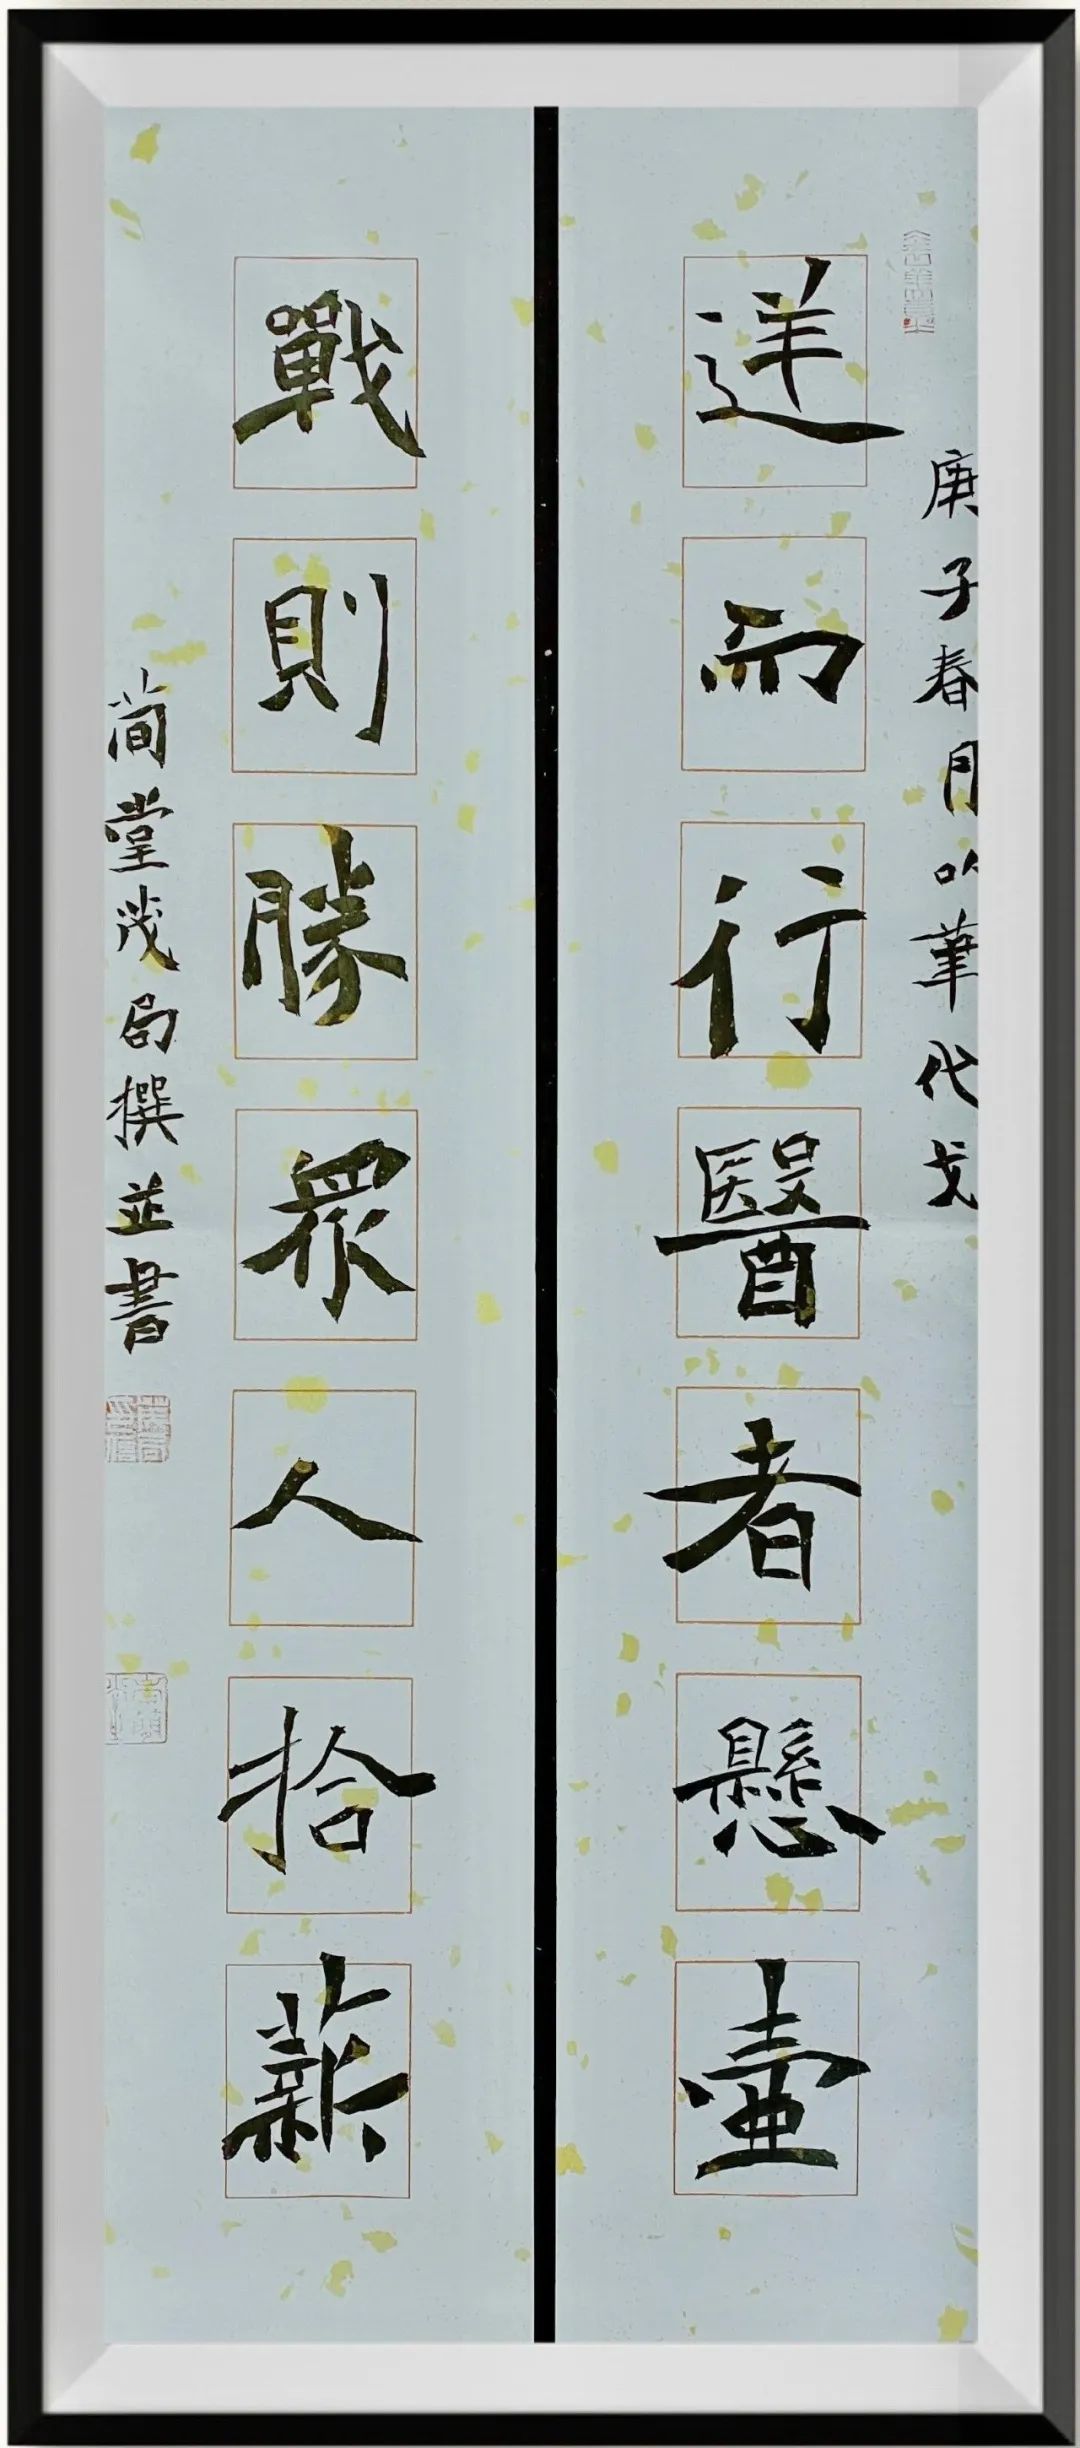 庚子春月以筆代戈
逆而行醫者懸壺
戰則勝眾人拾薪
簡堂茂局撰並書